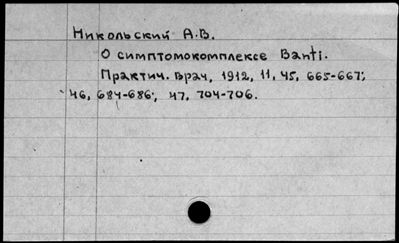 Никольский А.В.
О симптомокомплексе Banti.
Практич. врач, 1912, 11, 45, 665-667;
46, 684-686; 47, 704-706.